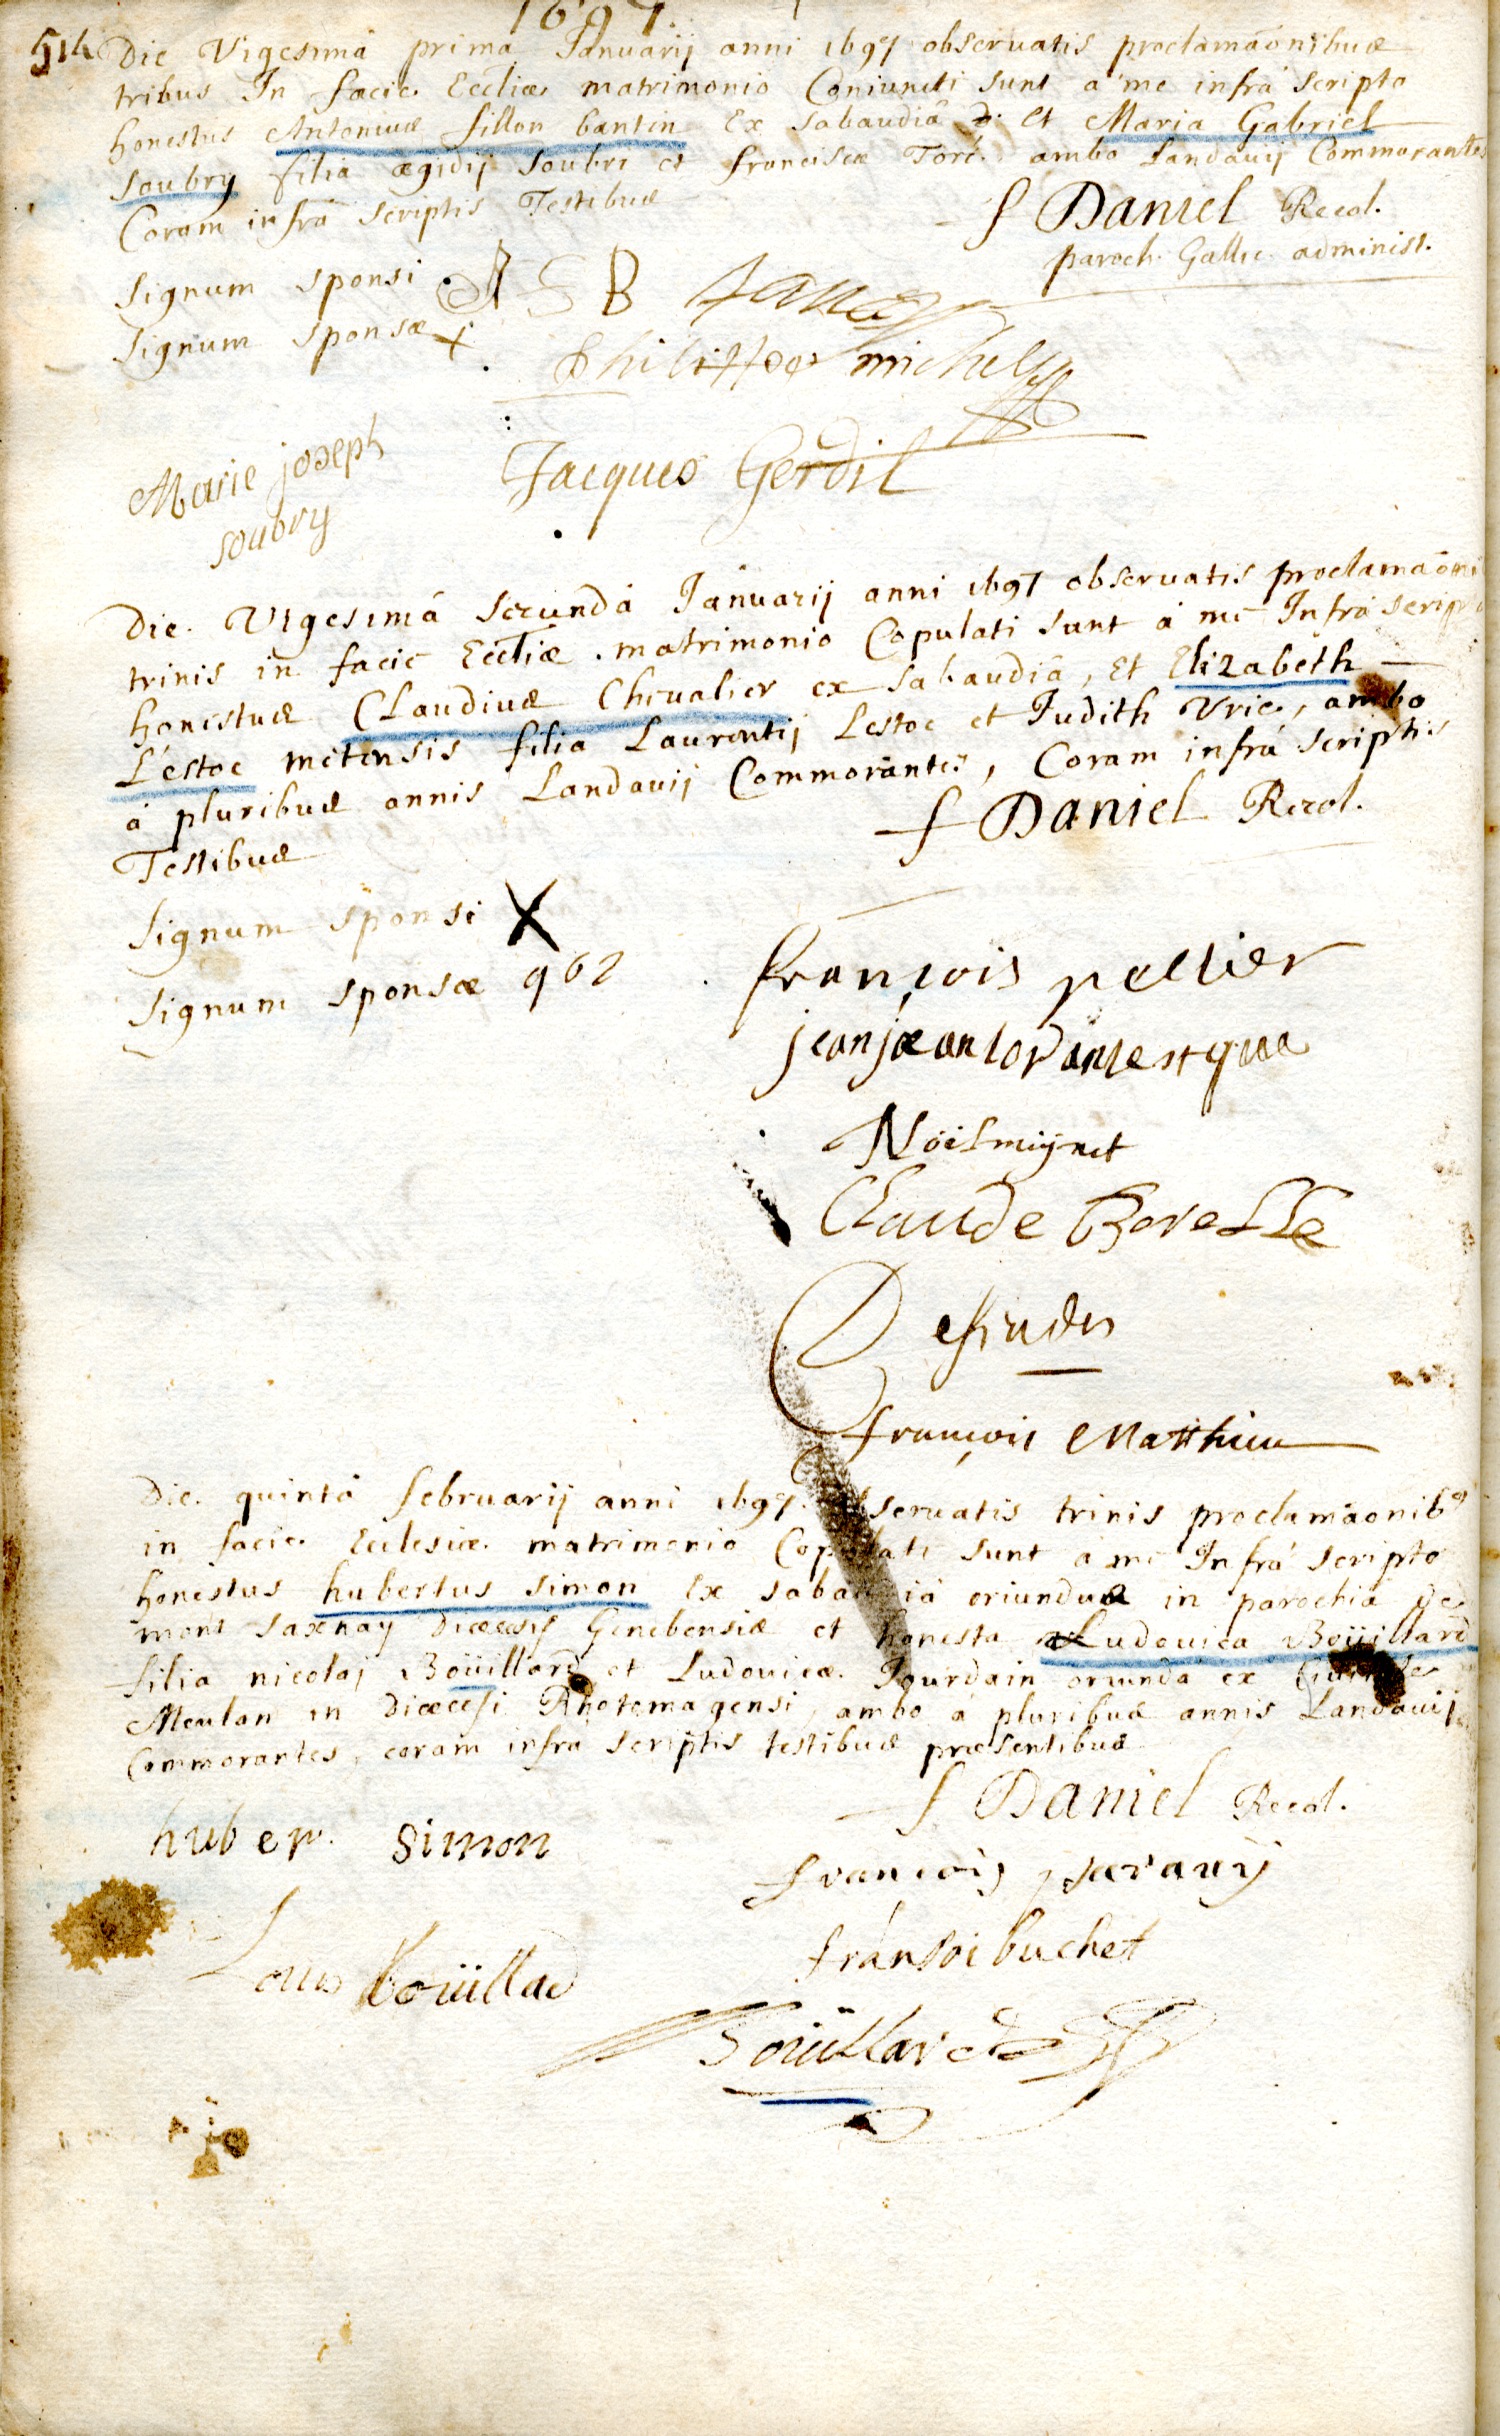 1697.
514
Die Vigesimâ primâ Januarij anni 1697 observatis proclamãonibus
tribus In facie Eccliæ matrimonio Coniuncti sunt à me infrà scripto
honestus Antonius fillon bantin Ex Sabaudiâ Et Maria Gabriel
Soubry filia ægidij Soubri et franciscæ Toré. ambo Landavij Commorantes
Coram infrà scriptis Testibus
f Daniel Recol.
paroch. Gallic. administ.
Signum sponsi A S B
Signum sponsæ +
philippe michel
Marie joseph
soubry
Jacques Gerdil
Die. Vigesimâ secundâ Januarij anni 1697 observatis proclamãoni
trinis in facie Eccliæ. matrimonio Copulati sunt à me Infrà scripto
honestus Claudius Chevalier ex Sabaudiâ, Et Elizabeth
L'estoc metensis filia Laurentij Lestoc et Judith Vrie, ambo
à pluribus annis Landavij Commorantes, Coram infrà scriptis
Testibus
f Daniel Recol.
Signum sponsi X
Signum sponsæ 962
françois pellier
Noël mijnet
Claude Borelle
françois Matthieu
Die. quintâ februarij anni 1697. observatis trinis proclamãonib9
in facie. Ecclesiæ. matrimonio Copulati sunt à me Infrà scripto
honestus hubertus simon Ex Sabaudiâ oriundus in parochiâ de
mont Saxnay Diœcesis Genebensis et honesta Ludovica Boüillard
filia nicolaj Boüillard et Ludovicæ. Jourdain oriunda ex Civitate
Meulan in Diœcesi Rhotomagensi, ambo à pluribus annis Landavij
Commorantes, coram infra scriptis testibus præsentibus
f Daniel Recol.
huber. simon
fransoi buchet
Louis boüillad
Boüillard